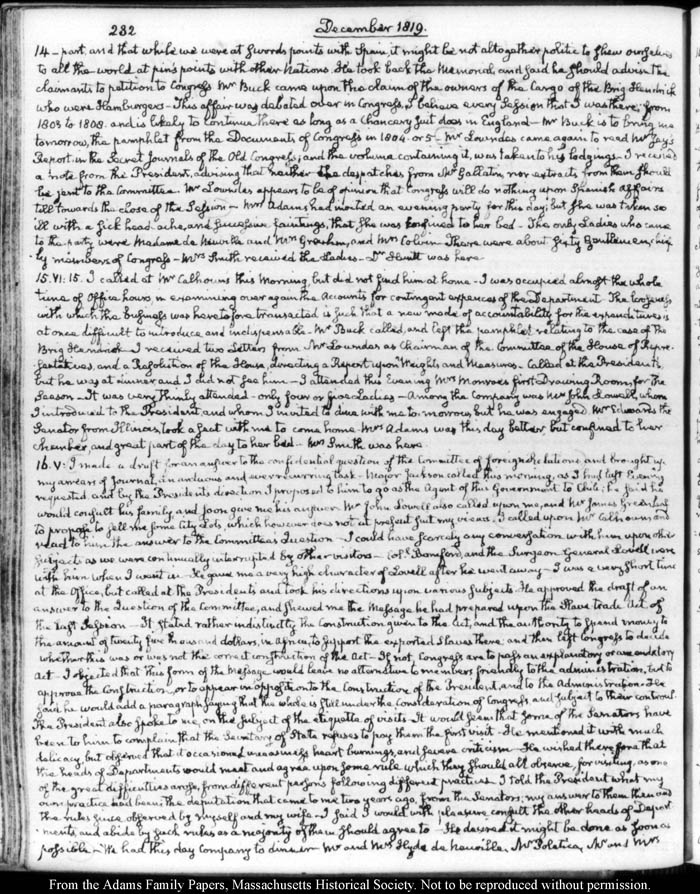 232 December 1819.
14 – part, and that while we were at swords points with Spain, it might be not altogether politic to shew ourselves
to all the world at pin's points with other Nations. He took back the Memorial, and said he should advise the
claimants to petition to Congress. Mr Buck came upon the claim of the owners of the Cargo of the Brig Hendrick
who were Hamburgers – This affair was debated over in Congress, I believe every Session that I was there, from
1803 to 1808. and is likely to continue there as long as a Chancery suit does in England – Mr Buck is to bring me
tomorrow, the pamphlet from the Documents of Congress in 1804. or 5 – Mr Lowndes came again to read Mr Jay's
Report in the Secret Journals of the Old Congress; and the volume containing it, was taken to his lodgings – I received
a note from the President, advising that neither the despatches from Mr Gallatin, nor extracts from them should
be sent to the Committee. Mr Lowndes appears to be of opinion that Congress will do nothing upon Spanish affairs
till towards the close of the Session – Mrs Adams had invited an evening party for this day; but She was taken so
ill with a sick head-ache, and successive faintings, that She was confined to her bed – The only Ladies who came
to the party were Madame de Neuville and Mrs Graham, and Mrs Colvin – There were about sixty Gentlemen, chief
ly members of Congress – Mrs Smith received the Ladies – Dr Huntt was here.
15. VI: 15. I called at Mr Calhouns this Morning, but did not find him at home – I was occupied almost the whole
time of Office hours in examining over again the Accounts for contingent expences of the Department. The looseness
with which the business was heretofore transacted is such that a new mode of accountability for the expenditures is
at once difficult to introduce, and indispensable – Mr Buck called, and left the pamphlet relating to the case of the
Brig Hendrick – I received two Letters from Mr Lowndes as Chairman of the Committee of the House of Repre-
sentatives, and a Resolution of the House, directing a Report upon Weights and Measures – Called at the Presidents,
but he was at dinner and I did not see him – I attended this Evening Mrs Monroe's first Drawing Room, for the
Season – It was very thinly attended – only four or five Ladies – Among the Company was Mr John Lowell, whom
I introduced to the President, and whom I invited to dine with me to-morrow, but he was engaged. Mr Edwards the
Senator from Illinois, took a seat with me to come home. Mrs Adams was this day better but confined to her
chamber, and great part of the day to her bed – Mrs Smith was here.
16. V: I made a draft for an answer to the confidential question of the Committee of foreign relations and brought up
my arrears of Journal, an arduous and ever recurring task – Major Jackson called this morning, as I had left
requested and by the President's direction I proposed to him to go as the Agent of this Government to Chili; he said he
would consult his family, and soon give me his answer. Mr John Lowell also called upon me, and Mr James Greenleaf
to propose to sell me some City Lots, which however does not at present suit my views. I called upon Mr Calhoun and
read to him the answer to the Committee's Question – I could have scarcely any conversation with him upon other
subjects as we were continually interrupted by other visitors – Coll Bomford, and the Surgeon General Lovell were
with him when I went in. He gave me a very high character of Lovell after he went away – I was a very short time
at the Office, but called at the Presidents and took his directions upon various subjects. He approved the draft of an
answer to the Question of the Committee, and shewed me the Message he had prepared upon the Slave trade Act of
the last Session – It stated rather indistinctly the Construction given to the Act, and the authority to spend money to
the amount of twenty five thousand dollars, in Africa, to support the exported Slaves there and then left Congress to decide
whether this was or was not the correct construction of the Act – If not, Congress are to pass an explanatory or amendatory
Act – I objected that this form of the Message, would leave no alternative to members friendly to the administration, but to
approve the Construction, or to appear in opposition to the Construction of the President, and to the Administration – He
said he would add a paragraph saying that the whole is still under the consideration of Congress, and subject to their controul.
The President also spoke to me, on the subject of the etiquette of visits – It would seem that some of the Senators have
been to him to complain, that the Secretary of State refuses to pay them the first visit – He mentioned it with much
delicacy, but observed that it occasioned uneasiness, heart burnings, and severe criticism – He wished therefore that
the heads of Departments would meet and agree upon some rule which they should all observe, for visiting, as one
of the great difficulties arose, from different persons following different practices. I told the President what my
own practice had been, the deputation that came to me two years ago, from the Senators, my answer to them then and
the rules since observed by myself and my wife – I said I would with pleasure consult the other heads of Depart-
ments, and abide by such rules as a majority of them should agree to – He desired it might be done as soon as
possible – We had this day company to dine – Mr and Mrs Hyde de Neuville, Mr Poletica, Mr and Mrs
From the Adams Family Papers, Massachusetts Historical Society. Not to be reproduced without permission.